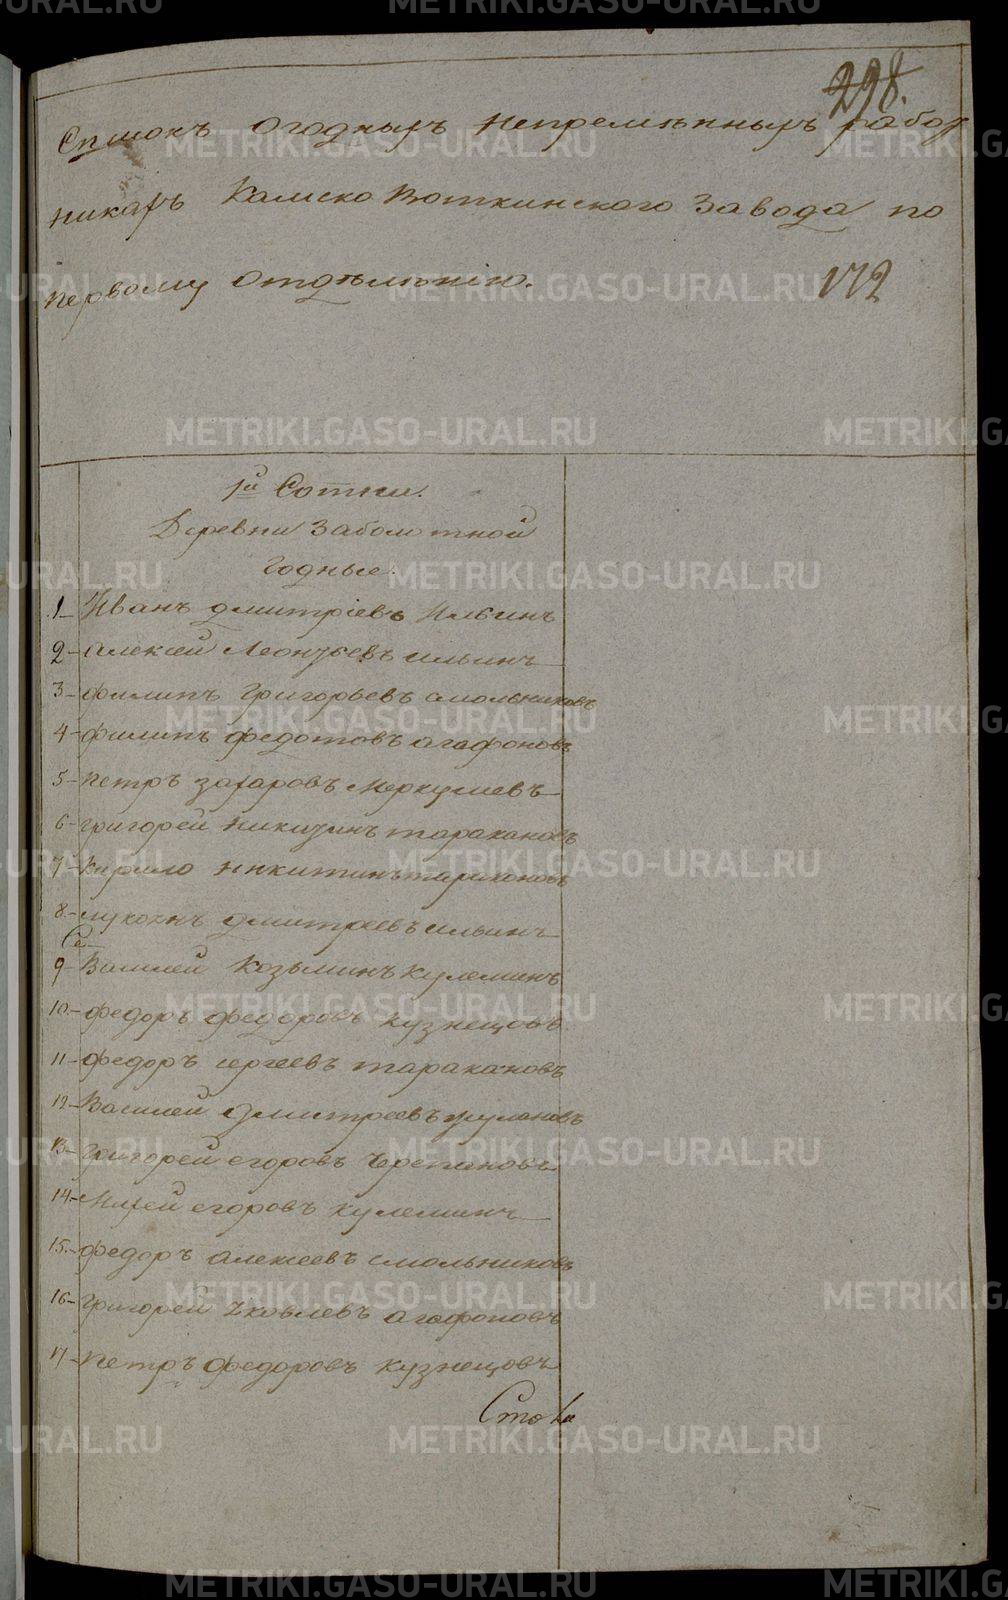 298.
Списокъ огодныхъ непремѣнныхъ работ
никахъ Камско Воткинского завода по
первому отдѣлѣнію.
172
1й Сотни.
Деревни Заболотной
годные.
1 Иванъ Дмитріевъ Ильинъ
2 алексей Леонтьевъ ильинъ
3 филипъ Григорьевъ смольниковъ
4 филипъ федотовъ агафоновъ
5 Петръ захаровъ Меркушевъ
6 григорей никитинъ таракановъ
7 Кирило никитинъ таракановъ
8 дмитреевъ ильинъ
9 Василей Козьминъ кулеминъ
10 федоръ федоровъ кузнецовъ
11 федоръ сергеевъ таракановъ
12 Василей дмитреевъ
13 Григорей егоровъ Черепановъ
14 егоровъ кулеминъ
15 федоръ алексеевъ смольниковъ
16 Григорей Яковлевъ агафоновъ
17 Петръ федоровъ кузнецовъ
METRIKI.GASO-URAL.RU